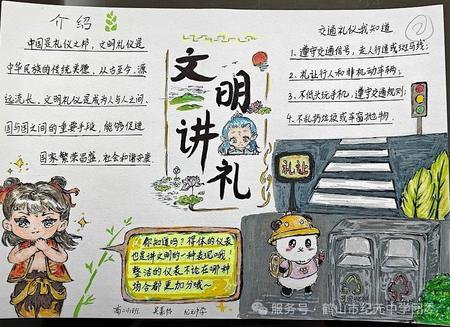 介绍
中国是礼仪之邦，文明礼仪是
中华民族的传统美德，从古至今，源
远流长，文明礼仪是成为人与人之间、
国与国之间的重要手段，能够促进
国家繁荣昌盛，社会和谐安康
文明讲礼
交通礼仪我知道
1.遵守交通信号，走人行道或斑马线；
2.礼让行人和非机动车辆；
3.不低头玩手机，遵守交通规则；
4.不乱扔垃圾或车窗抛物.
礼让
你知道吗？得体的仪表
也是讲文明的一种表现哦！
整洁的仪表不论在哪种
场合都更加分哦~
服务号·鹤山市纪元中学团委